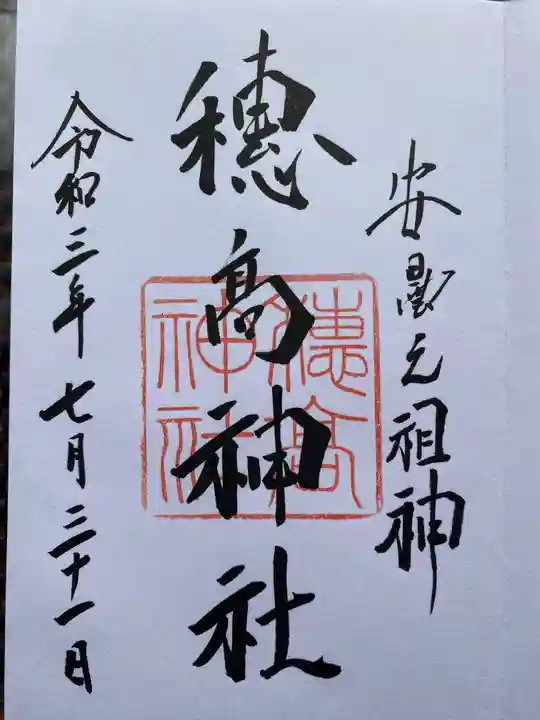 安曇之祖神
穂髙神社
穂高神社
令和三年七月三十一日